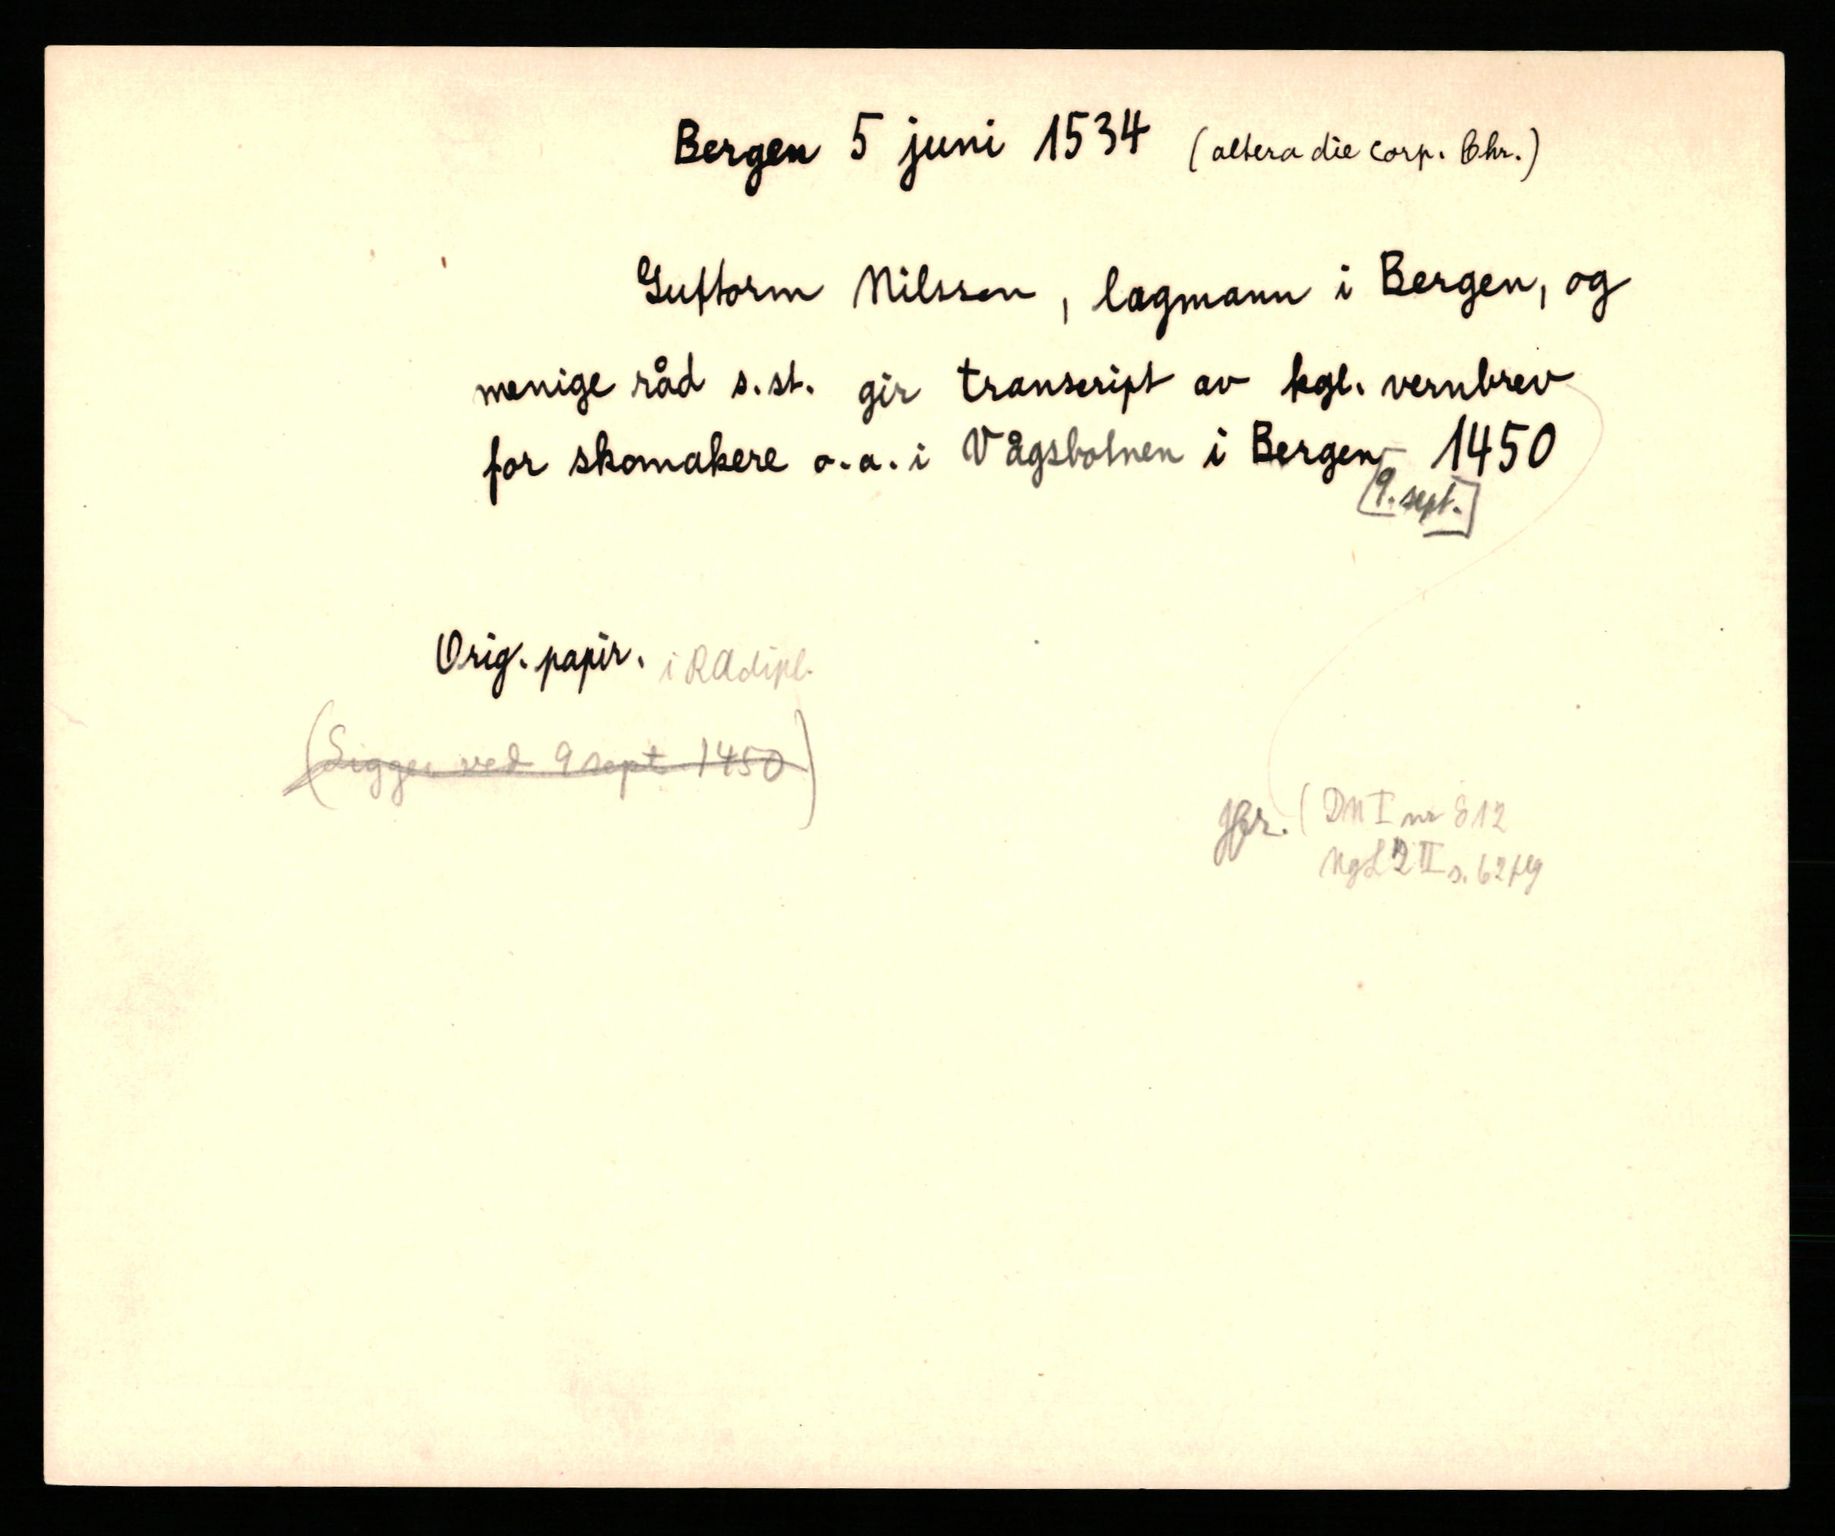 Bergen 5 juni 1534 (altera die corp. Chr.)
Guttorm Nilsson, lagmann i Bergen, og
menige råd s.st. gir transcript av kgl. vernbrev
for skomakere o.a. i Vågsbotnen i Bergen 1450
[9. sept.]
Orig. papir. i RAdipl.
(Ligger ved 9 sept 1450)
Jfr. (DN I nr 812
NgL 2 II s. 62 flg